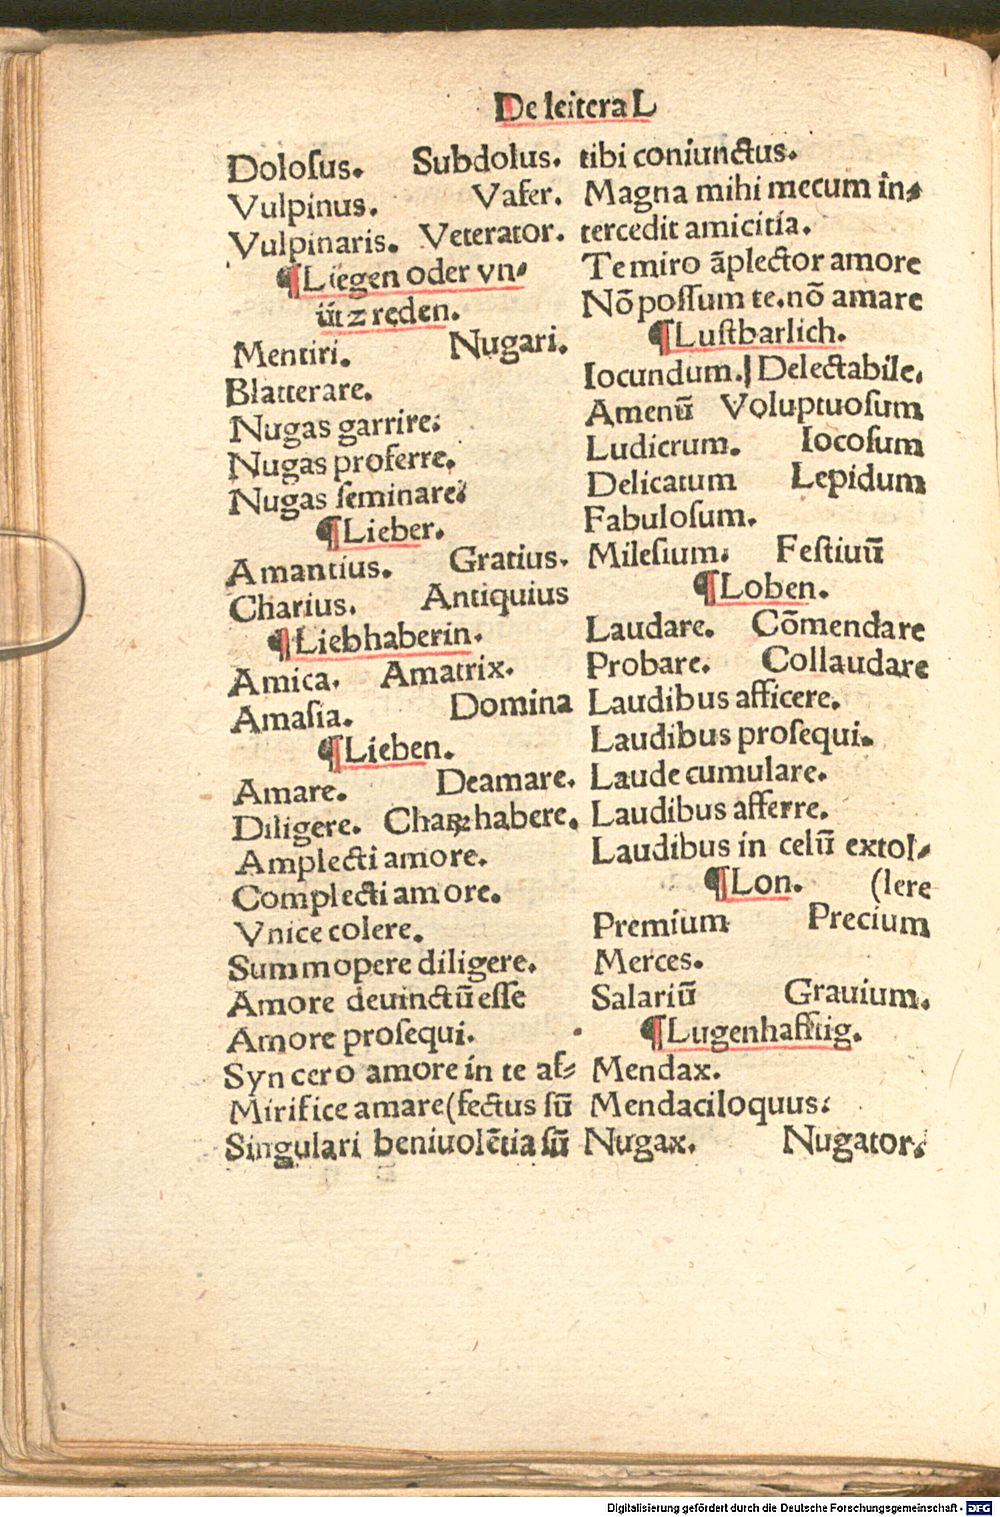 De leitera L
Doloſus. Subdolus.
Vulpinus. Vafer.
Vulpinaris. Veterator.
¶Liegen oder vn⸗
üt z reden.
Mentiri. Nugari.
Blatterare.
Nugas garrire:
Nugas proferre.
Nugas ſeminare:
¶Lieber.
Amantius. Gratius.
Charius. Antiquius
¶Liebhaberin.
Amica. Amatrix.
Amaſia. Domina
¶Lieben.
Amare. Deamare.
Diligere. Chaꝝ habere.
Amplecti amore.
Complecti amore.
Vnice colere.
Summopere diligere.
Amore deuinctū eſſe
Amore proſequi.
Syncero amore in te af⸗
Mirifice amare (fectus ſū
Singulari beniuolētia ſū
tibi coniunctus.
Magna mihi mecum in⸗
tercedit amicitia.
Te miro āplector amore
Nō poſſum te. nō amare
¶Luſtbarlich.
Iocundum. Delectabile.
Amenū Voluptuoſum
Ludicrum. Iocoſum
Delicatum Lepidum
Fabuloſum.
Mileſium: Feſtiuū
¶Loben.
Laudare. Cōmendare
Probare. Collaudare
Laudibus afficere.
Laudibus proſequi.
Laude cumulare.
Laudibus afferre.
Laudibus in celū extol⸗
¶Lon. (lere
Premium Precium
Merces.
Salariū Grauium.
¶Lugenhafftig.
Mendax.
Mendaciloquus:
Nugax. Nugator.
Digitalisierung gefördert durch die Deutsche Forschungsgemeinschaft - DFG